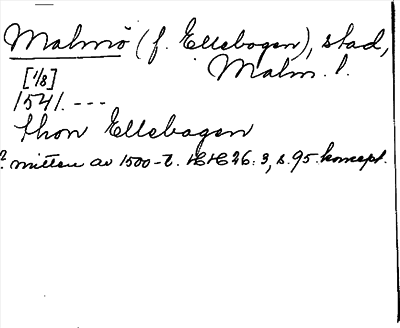 Malmö (f. Ellebogen), stad,
Malm. l.
[1/8]
1541. ---
thon Ellebagen
? mitten av 1500-t. HH 26:3, s. 95. koncept.